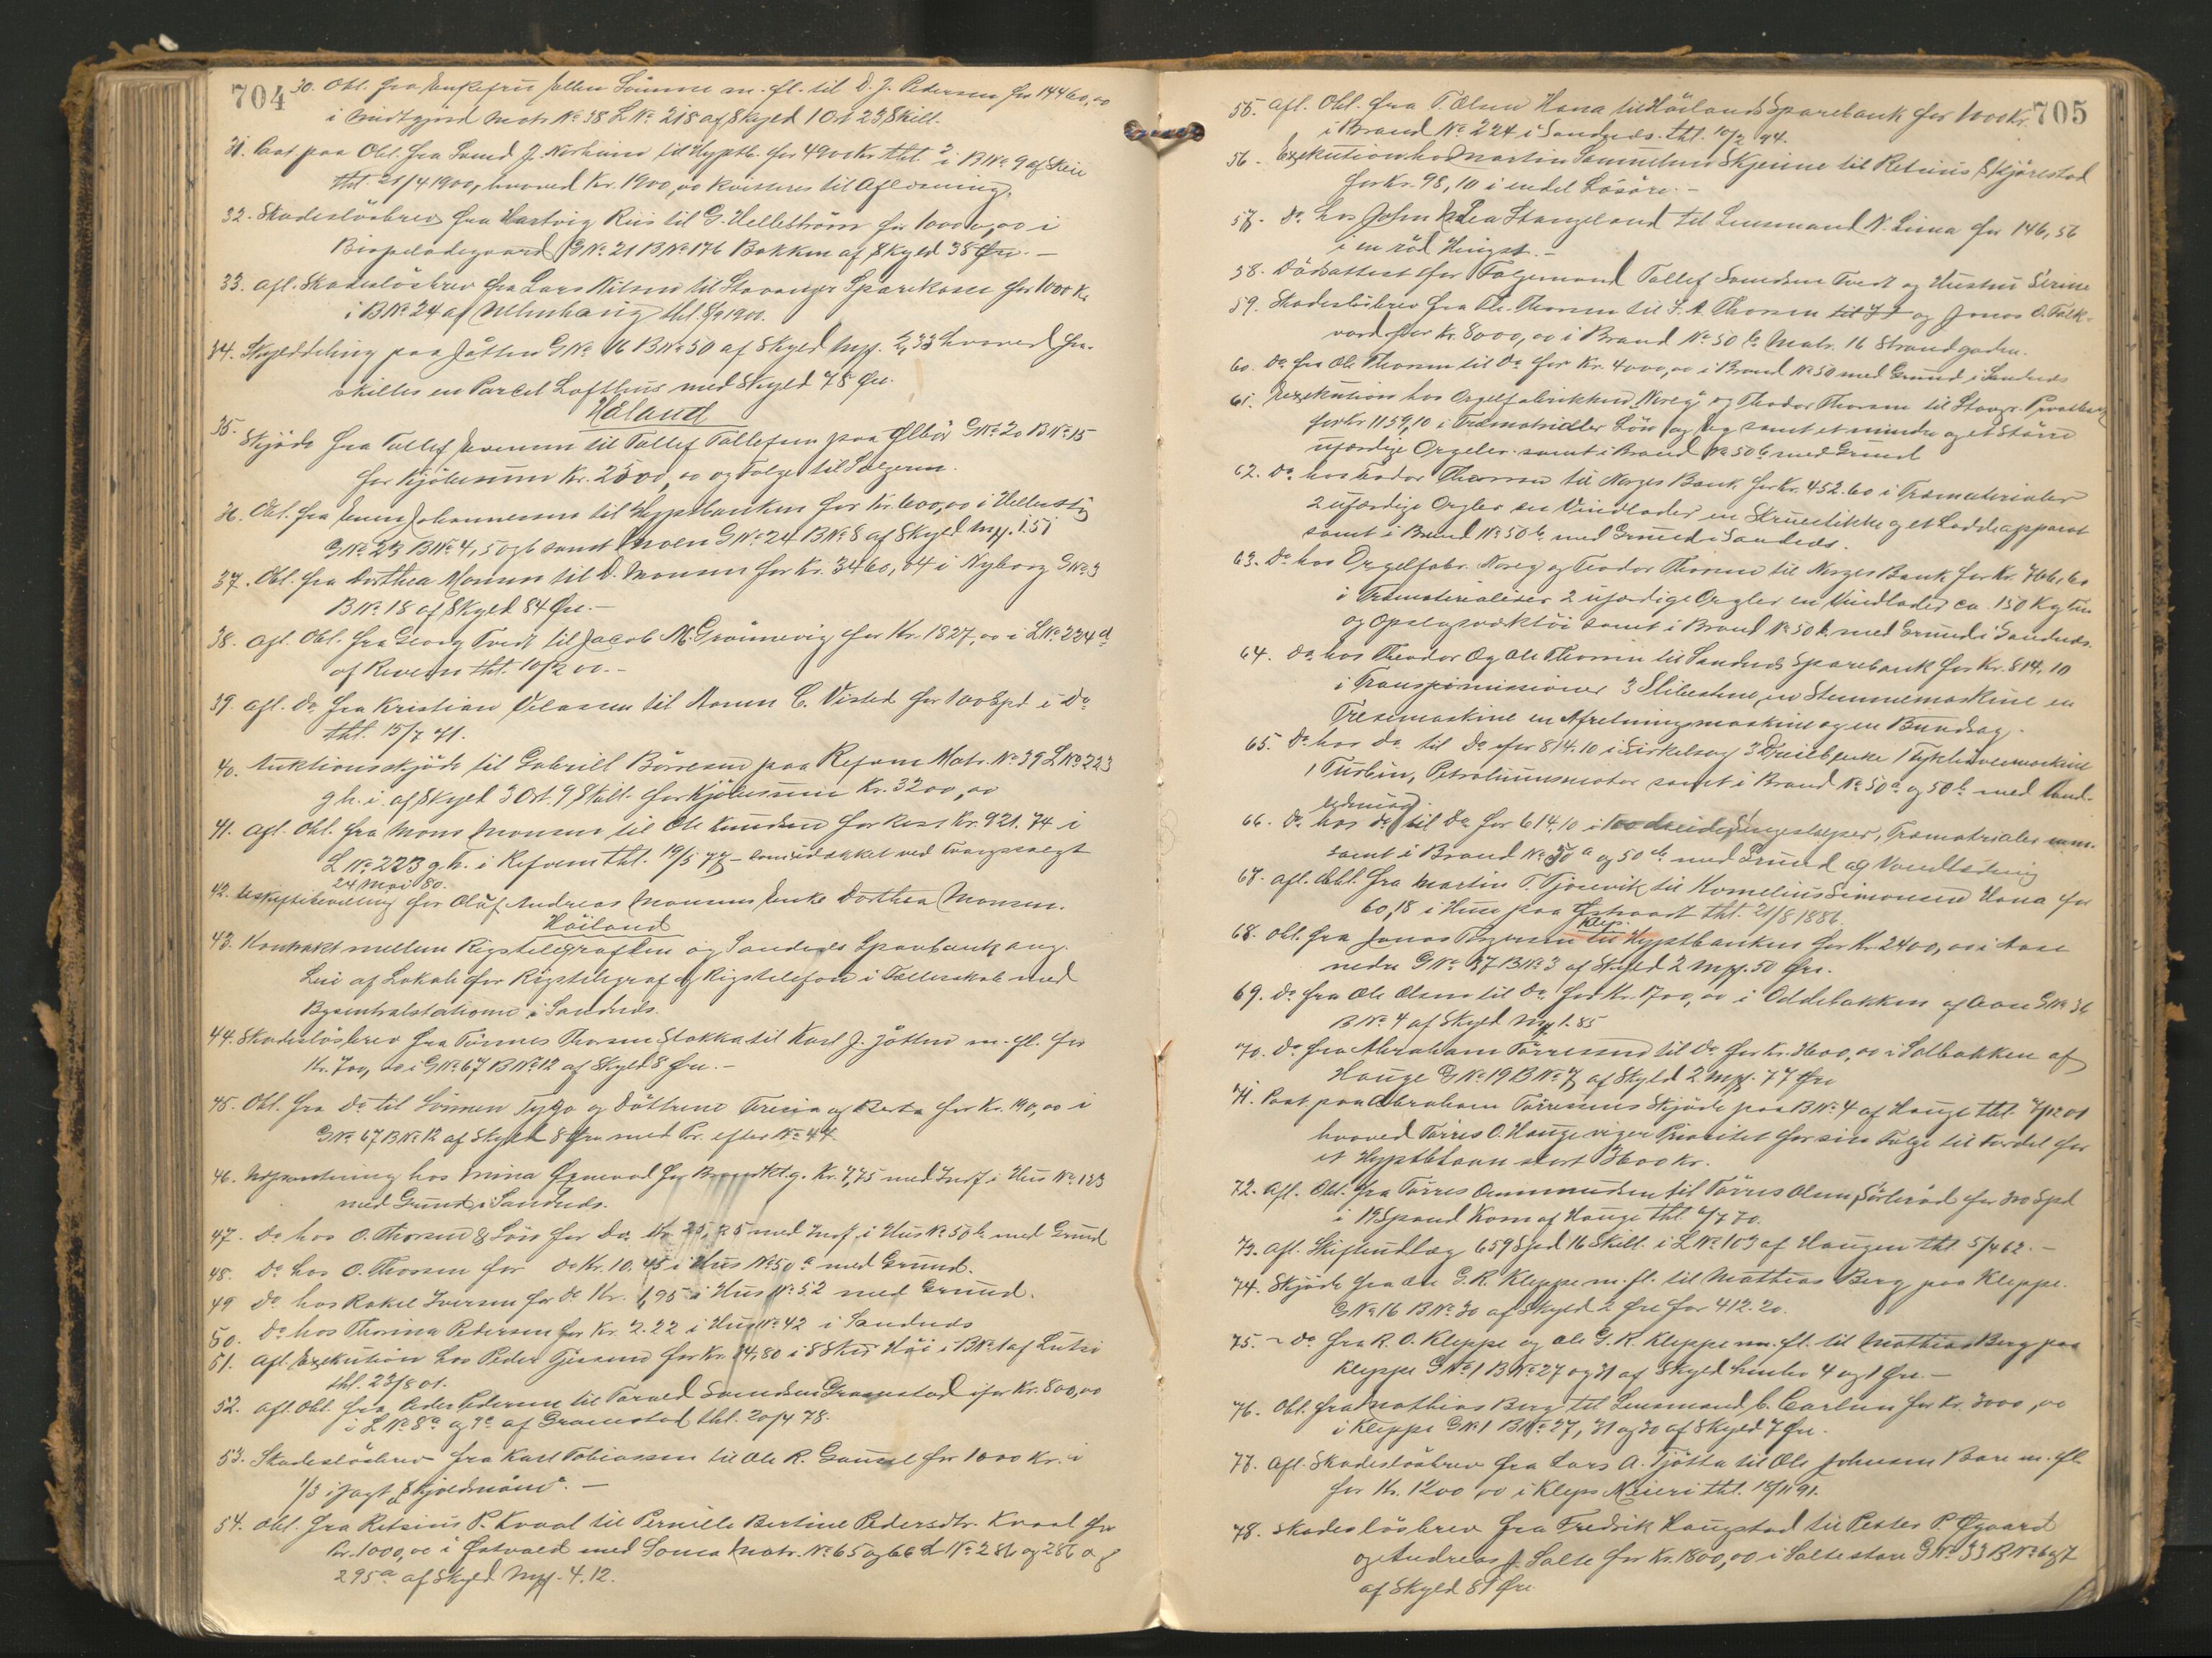 704
30. Obl. fra Enkefru Ellen Sömme m. fl. til D. J. Pedersen for 14460,00
i Midtgjord Matr. No 38 L No 218 af Skyld 1 Ort 23 Skill.
31. Paat paa Obl. fra Svend J. Norheim til Hyptb. for 4900 Kr. thl. i B No 9 af Skeie
thl. 21/4 1900, hvorved Kr. 1900,00 kvitteres til Aflæsning.
32. Skadeslösbrev fra Hartvig Riis til G. Hellström for 10000,00 i
Bispeladegaard G No 21 B No 176 Bakken af Skyld 38 Øre. -
33. Afl. Skadeslösbrev fra Lars Nilsen til Stavanger Sparekasse for 1000 Kr.
i B No 24 af thl. 8/9 1900.
34. Skylddeling paa Jåtten G No 16 B No 50 af Skyld Mrk. 2,33 hvorved fra-
skilles en Parcel Lofthus med Skyld 78 Øre.
Håland
35. Skjöde fra Tollef Evensen til Tollef Tollefsen paa Ølbör G No 20 B No 15
for Kjöbesum Kr. 2500,00 og Folge til Sælgeren.
36. Obl. fra Even Johannessen til Hyptbanken for Kr. 600,00 i Hellestö
G No 23 B No 4, 5 og 6 samt G No 24 B No 8 af Skyld Mrk. 1.51
37. Obl. fra Dorthea Monsen til D. Monsen for Kr. 3460,84 i Nyborg G No 3
B No 18 af Skyld 84 Øre. -
38. Afl. Obl. fra Georg Tvedt til Jacob M. Grönnevig for Kr. 1827,00 i L No 224 d
af Revem thl. 10/2 00. -
39. Afl. Do fra Kristian til C. Visted for 100 Spd i Do
thl. 15/7 41.
40. Auktionsskjöde til Gabriel Börresen paa Refsnes Matr. No 39 L No 223
g.h.i. af Skyld 3 Ort. 9 Skill. for Kjöbesum Kr. 3200,00
41. Afl. Obl. fra Mons Monsen til Ole Knudsen for Rest Kr. 921.74 i
L No 223 g.h.i Refsnes thl. 19/5 77 - ved Tvangssalgt
24 Mai 80.
42. Uskiftebevilling for Oluf Andreas Monsens Enke Dorthea Monsen.
Höiland
43. Kontrakt mellem Rigstelegrafen og Sandnes Sparebank ang.
Leie af Lokale for Rigstelegraf og Rigstelefon i Fællesskab med
Bycentralstationen i Sandnes.
44. Skadeslösbrev fra Tönnes Thorsen Stokka til Karl J. Jåtten m. fl. for
Kr. 700,00 i G No 67 B No 12 af Skyld 8 Øre. -
45. Obl. fra Do til Sönnen Tygo og Döttrene Teresia og Berta for Kr. 190,00 i
G No 67 B No 12 af Skyld 8 Øre med Pr. efter No 44
46. Udpantning hos Mina for Brandktg. Kr. 7,75 med Inf. i Hus No 123
med Grund i Sandnes.
47. Do hos O. Thorsen & Sön for Do Kr. 25,25 med Inf. i Hus No 50 b med Grund
48. Do hos O. Thorsen for Do Kr. 10.45 i Hus No 50 a med Grund.
49 Do hos Rakel Iversen for Do Kr. 1,95 i Hus No 52 med Grund.
50. Do hos Thorina Pedersen for Kr. 2.22 i Hus No 42 i Sandnes
51. Afl. Exekution hos Peder for Kr. 14,80 i 8 Skp Höi i B No 1 af Lutsi
thl. 23/8 01.
52. Afl. Obl. fra Peder Pedersen til Torvald Svendsen Gramstad for Kr. 800,00
i L No 8 a og 9 a af Gramstad thl. 20/4 78.
53. Skadeslösbrev fra Karl Tobiassen til Ole R. Gausel for 1000 Kr. i
1/3 i Jagt "Skjoldmöen". -
54. Obl. fra Retsius P. Kvaal til Pernille Bertine Pedersdtr. Kvaal for
Kr. 1000,00 i Østvold med Soma Matr. No 65 og 66 L No 286 og 286 a og
295 a af Skyld Mrk. 4.12.
705
55. Afl. Obl. fra T. Olsen Hana til Höilands Sparebank for 1000 Kr.
i Brand No 224 i Sandnes. thl. 10/2 94.
56. Exekution hos Martin Samuelsen Skjeine til Retsius Skjörestad
for Kr. 98,10 i endel Lösöre. -
57. Do hos John & Lea Stangeland til Lensmand N. Lima for 146,56
i en röd Hingst. -
58. Dödsattest for Folgemand Tollef Svendsen Tvedt og Hustru Serine
59. Skadeslösbrev fra Th. Thorsen til S. A. Thorsen til J J og Jonas O. Falk-
vard for Kr. 8000,00 i Brand No 50 b Matr. 16 Strandgaden.
60. Do fra Ole Thorsen til Do for Kr. 4000,00 i Brand No 50 med Grund i Sandnes
61. Exekution hos Orgelfabrikken "Noreg" og Theodor Thorsen til Stavgr. Privatbank
for Kr 1159,10 i Træmaterialer Lön og samt et mindre og et större
ufærdige Orgeler samt i Brand No 50 b med Grund
62. Do hos Teodor Thorsen til Norges Bank for Kr. 452.60 i Træmaterialer
2 ufærdige Orgler en Vindlader en Skruestikke og et Loddeapparat
samt i Brand No 50 b med Grund i Sandnes.
63. Do hos Orgelfabr. Noreg og Teodor Thorsen til Norges Bank for Kr. 766,60
i Træmaterialier 2 ufærdige Orgler en Vindlader ca. 150 Kg Tin
og Opslagsværktöi samt i Brand No 50 b med Grund i Sandnes.
64. Do hos Theodor og Ole Thorsen til Sandnes Sparebank for Kr. 814,10
i Transmissioner 3 Slibestene, en Stemmemaskine en
Fresemaskine en Afretningsmaskine og en Bundsag.
65. Do hos Do til Do for 814.10 i Sirkelsag 3 Dreiebænke 1
1 Turbin, Petroliumsmotor samt i Brand No 50 a og 50 b med Vand-
ledning.
66. Do hos do til Do for 614,10 i 100 Sengestolper, Træmaterialer m.m.
samt i Brand No 50 a og 50 b med Grund og Vandledning
67. Afl. Obl. fra Martin T. Tjosevik til Kornelius Simonsen Hana for
60,18 i Huse paa Østraadt thl. 21/8 1886.
Klep
68. Obl. fra Jonas Torgersen til Hyptbanken for Kr. 2400,00 i Aase
nedre G No 37 B No 3 af Skyld 2 Mrk. 50 Øre.
69. Do fra Ole Olsen til Do for Kr. 1700,00 i Oddebakken af Aase G No 36
B No 4 af Skyld Mrk 1.85
70. Do fra Abraham Törresen til Do for Kr. 3600,00 i Solbakken af
Hauge G No 19 B No 7 af Skyld 2 Mrk. 77 Øre
71. Paat paa Abraham Törresens Skjöde paa B No 4 af Hauge thl. 7/12 01
hvorved Törres O. Hauge viger Prioritet for sin Folge til Fordel for
et Hyptblaan stort 3600 Kr.
72. Afl. Obl. fra Törres Ommundsen til Törres Olsen Sörbröd for 300 Spd
i 19 Spand Korn af Hauge thl. 6/7 70.
73. Afl. Skifteudlæg 659 Spd 16 Skill. i L No 103 af Haugen thl 5/4 62. -
74. Skjöde fra Ole G. R. Kleppe m. fl. til Mathias Berg paa Kleppe.
G No 16 B No 30 af Skyld 2 Øre for 412.20.
75. - Do fra R. O. Kleppe og Ole G. R. Kleppe m. fl. til Mathias Berg paa
Kleppe G No 1 B No 27 og 31 af Skyld hinbr 4 og 1 Øre. -
76. Obl. fra Mathias Berg til Lensmand C. Carlsen for Kr. 3000,00
i Kleppe G No 1 B No 27, 31 og 30 af Skyld 7 Øre.
77. Afl. Skadeslösbrev fra Lars A. Tjötta til Ole Johnsen Bore m. fl.
for Kr. 1200,00 i Kleps Meieri thl. 18/11 91.
78. Skadeslösbrev fra Fredrik Haugstad til Peder P. Øgaard
og Andreas J. Salte for Kr. 1800,00 i Saltestore G No 33 B No 6 og 7
af Skyld 81 Øre